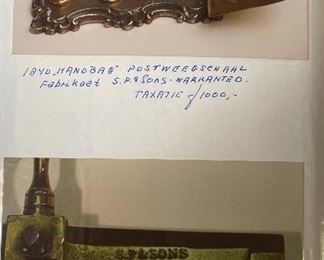 1840 „HANDBAG" POSTWEEGSCHAAL
Fabrikaat S.P.&Sons-WARRANTED.
TAXATIE f 1000,-
S.P.&SONS